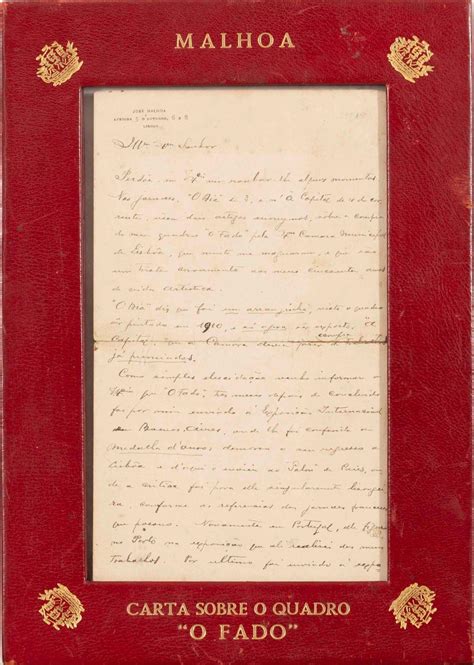 MALHOA
JOSÉ MALHOA
AVENIDA 5 D'OUTUBRO, 6 e 8
LISBOA
Illmo Exmo Senhor
Perdôe, em roubar-lh alguns momentos
Nos jornaes, "O Dia" de 3, e n'"A Capital" de 4 do cor-
rente, dois artigos anonymos, sobre a compra
do meu quadro "O Fado" pela Exma Camara Municipal
de Lisbôa, que muito me magoaram, e que são
um triste aos meus cincoenta annos
de vida Artistica.
"O Dia" diz que foi um arranjinho, visto o quadro
pintado em 1910, e só agora exposto, "A
compra
Capital", que a Camara
já
Como simples elucidação venho informar o
que "O Fado", tres mezes depois de concluido
foi por mim enviado á Exposição Internacional
de Buenos Aires, onde lh foi conferida a
medalha d'ouro, demorou o seu regresso a
Lisbôa e d'aqui o enviei ao "Salon" de Paris, on-
de a critica foi para elle singularmente lisongei-
ra, conforme as referencias dos jornaes francezes
que possuo. Novamente em Portugal,
no Porto na exposição que ali realisei dos meus
trabalhos. Por ultimo foi enviado á expo
CARTA SOBRE O QUADRO
"O FADO"